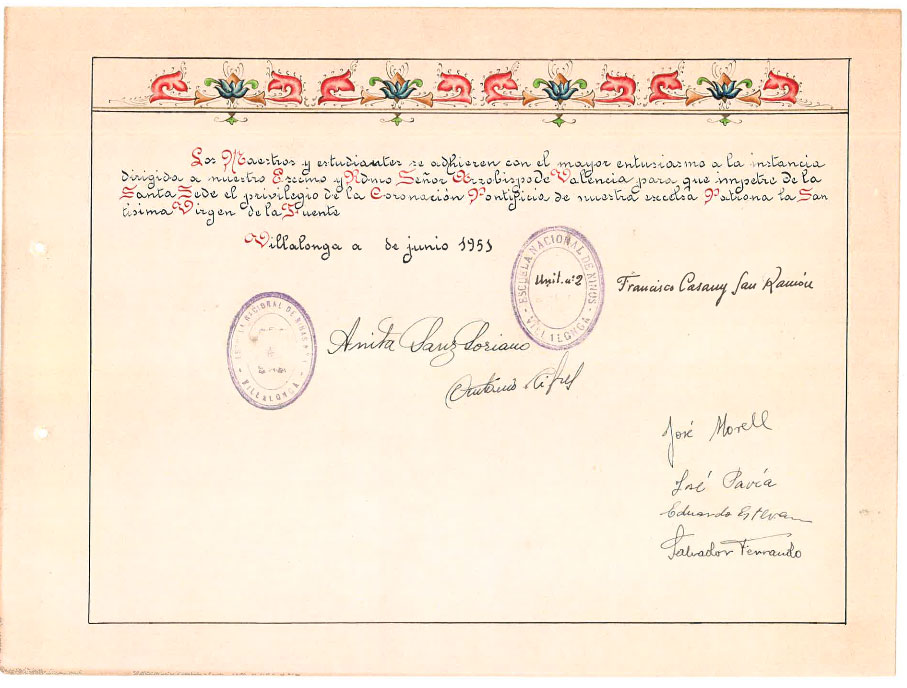 Los Maestros y estudiantes se adhieren con el mayor entusiasmo a la instancia
dirigida a nuestro Excmo y Rdmo Señor Arzobispo de Valencia para que impetre de la
Santa Sede el privilegio de la Coronación Pontificia de nuestra excelsa Patrona la San
tísima Virgen de la Fuente
Villalonga a de junio 1951
ESCUELA NACIONAL DE NIÑOS
Unit. nº 2
VILLALONGA
Francisco Casany San Ramón
NACIONAL DE NIÑAS
VILLALONGA
Anita Sanz Soriano
Antonio
José Morell
José Pavía
Eduardo Estevan
Salvador Ferrando